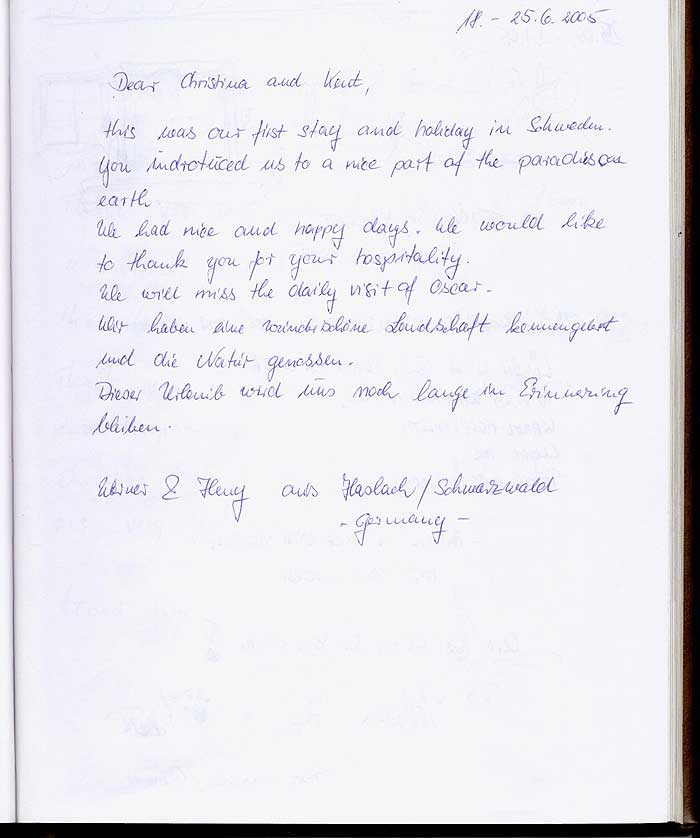 18. - 25.6. 2005
Dear Christina and Kent,
this was our first stay and holiday in Schweden.
You indrotuced us to a nice part of the paradies on
earth
We had nice and happy days. We would like
to thank you for your hospitality.
We will miss the daily visit of Oscar.
Wir haben eine wunderschöne Landschaft kennengelernt
und die Natur genossen.
Dieser Urlaub wird uns noch lange in Erinnerung
bleiben.
Werner & aus Haslach / Schwarzwald
- Germany -